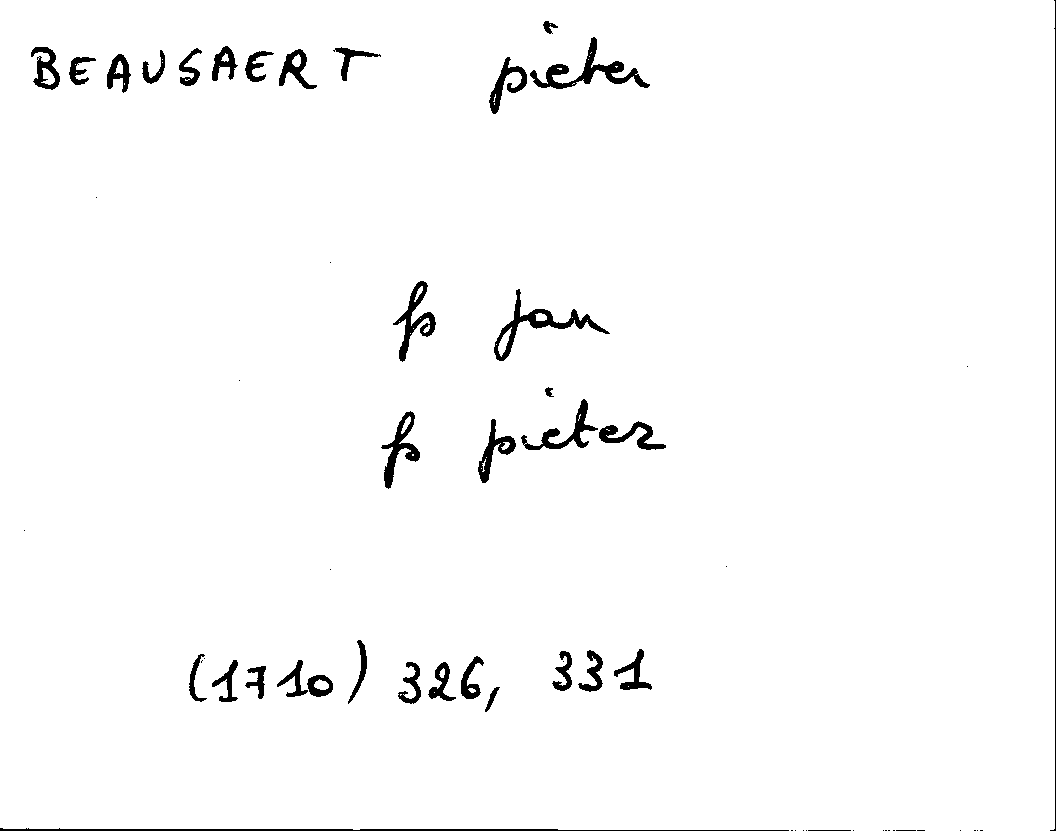 BEAUSAERT pieter
fs jan
fs pieter
(1710) 326, 331